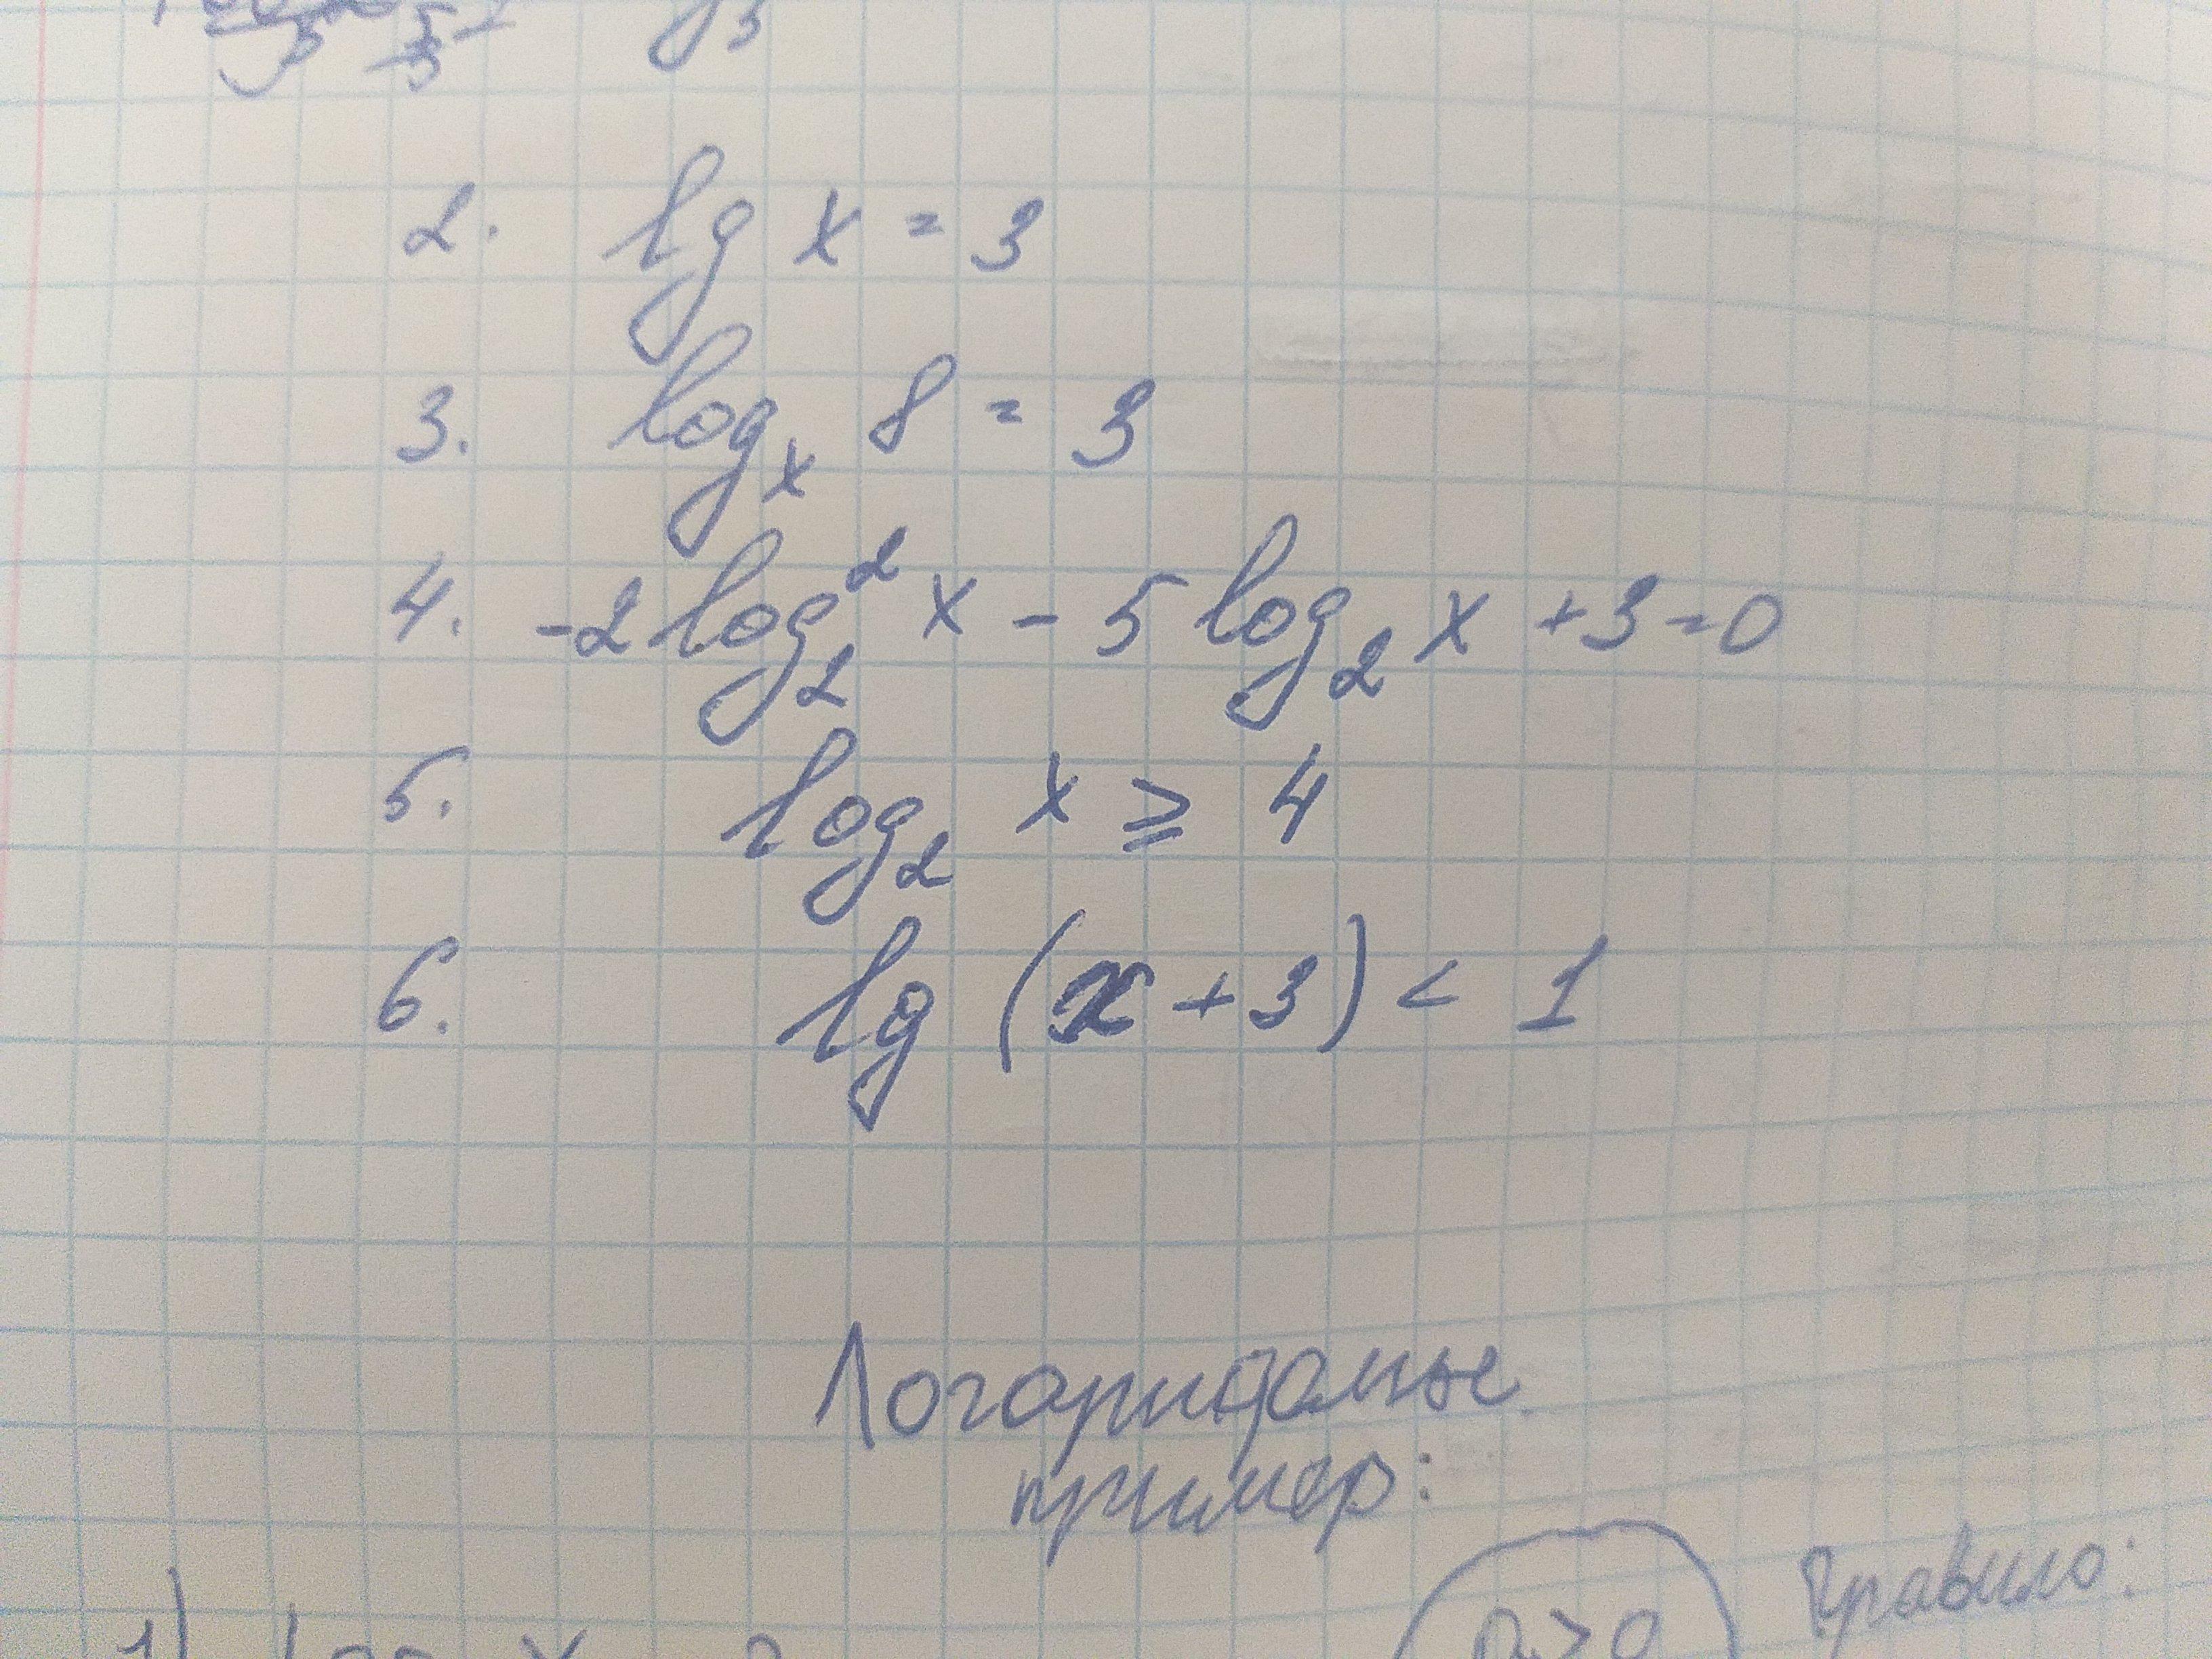 2. lg x = 3
3. logₓ 8 = 3
4. -2 log₂² x - 5 log₂ x + 3 = 0
5. log₂ x ⩾ 4
6. lg (x + 3) < 1
Логарифмые
пример:
Правило:
a > 0
1)